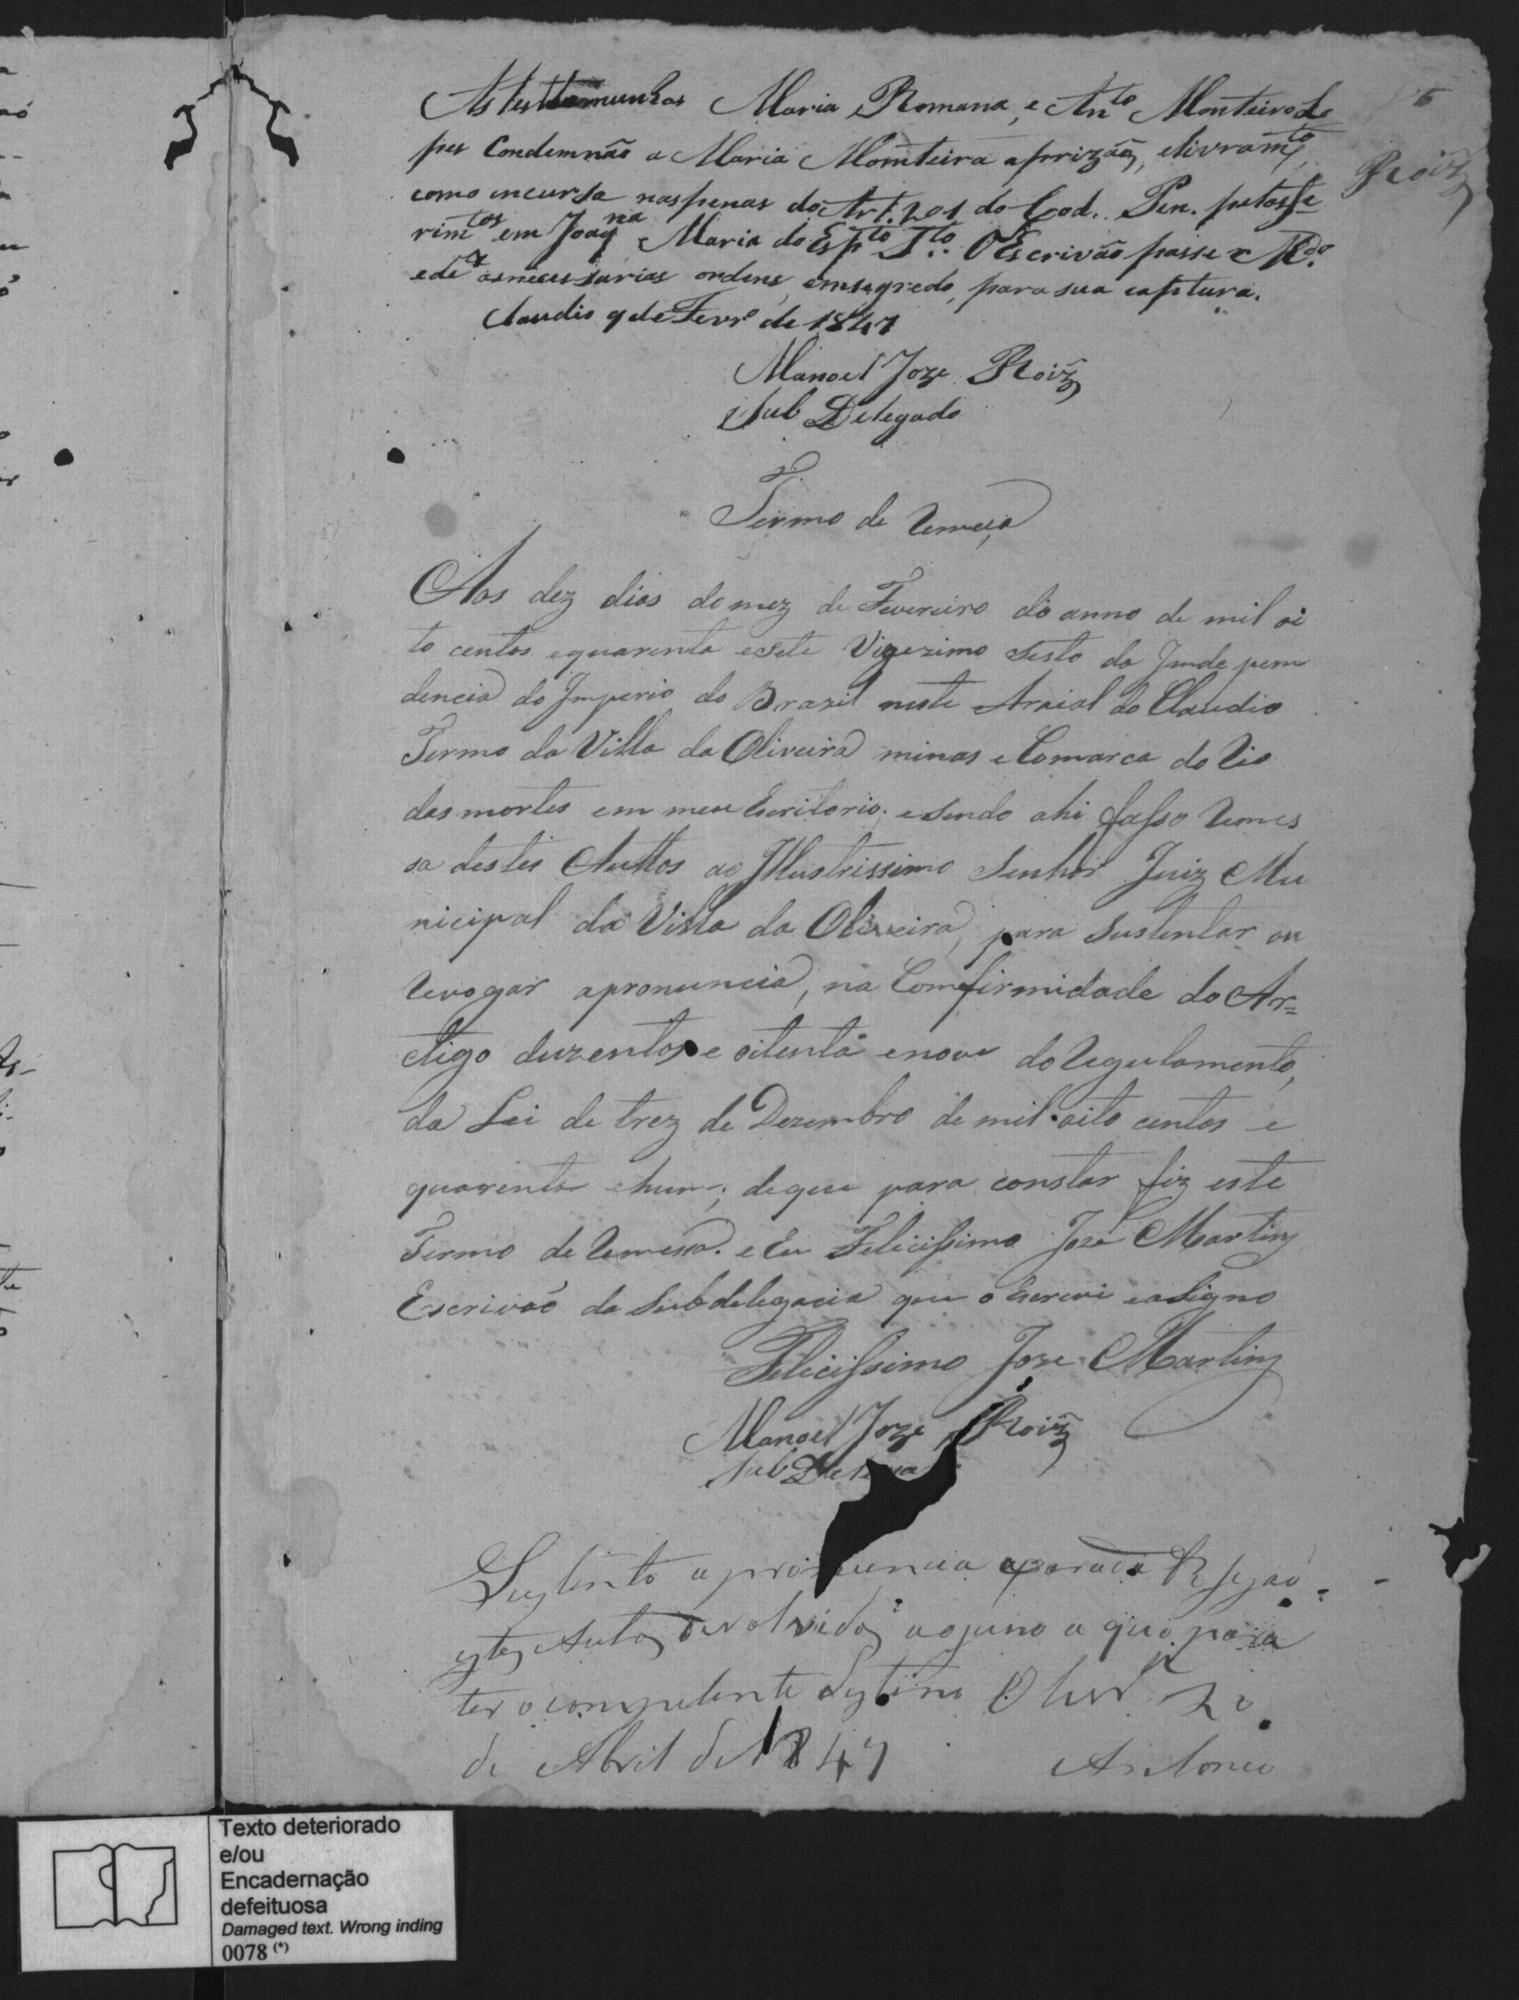 6
Roiz
As testtemunhas Maria Romana, e Anto Monteiro Lo
pes Condemnão a Maria Monteira aprizão, elivramto,
como incursa naspenas do Art. 201 do Cod. Pen. pelos fe
rimtos em Joaqna Maria do Espto Sto. O Escrivão passe Mdo.
e dê as necessarias ordens, emsegredo, para sua captura.
Claudio 9 de Fevro de 1847
Manoel Joze Roiz
Sub Delegado
Termo de Remeça
Aos dez dias do mez de Fevereiro do anno de mil oi
to centos equarenta esete Vigezimo sesto da Imde pem
dencia do Imperio do Brazil neste Arraial do Claudio
Termo da Villa da Oliveira minas e Comarca do Rio
das mortes em meu Escritorio, esendo ahi fasso Remes
sa destes Auttos ao Illustrissimo Senhor Juiz Mu
nicipal da Villa da Oliveira, para sustentar ou
Revogar apronuncia, na Comfirmidade do Ar=
tigo duzentos e oitenta enove do Regulamento,
da Lei de trez de Dezembro de mil oito centos e
quarenta ehum; deque para constar fiz este
Termo de Remessa. e Eu Felicissimo José Martins
Escrivaõ da Subdelegacia que o Escrevi easigno
Felicissimo Joze Martins
Manoel Joze Roiz
Sub Delega
Sustento a pronuncia sejaõ
estes Autos devolvidos ao juiso a quo para
ter o competente destino Olivr 20
de Abril de 1847 Antonio
Texto deteriorado
e/ou
Encadernação
defeituosa
Damaged text. Wrong inding
0078 (*)